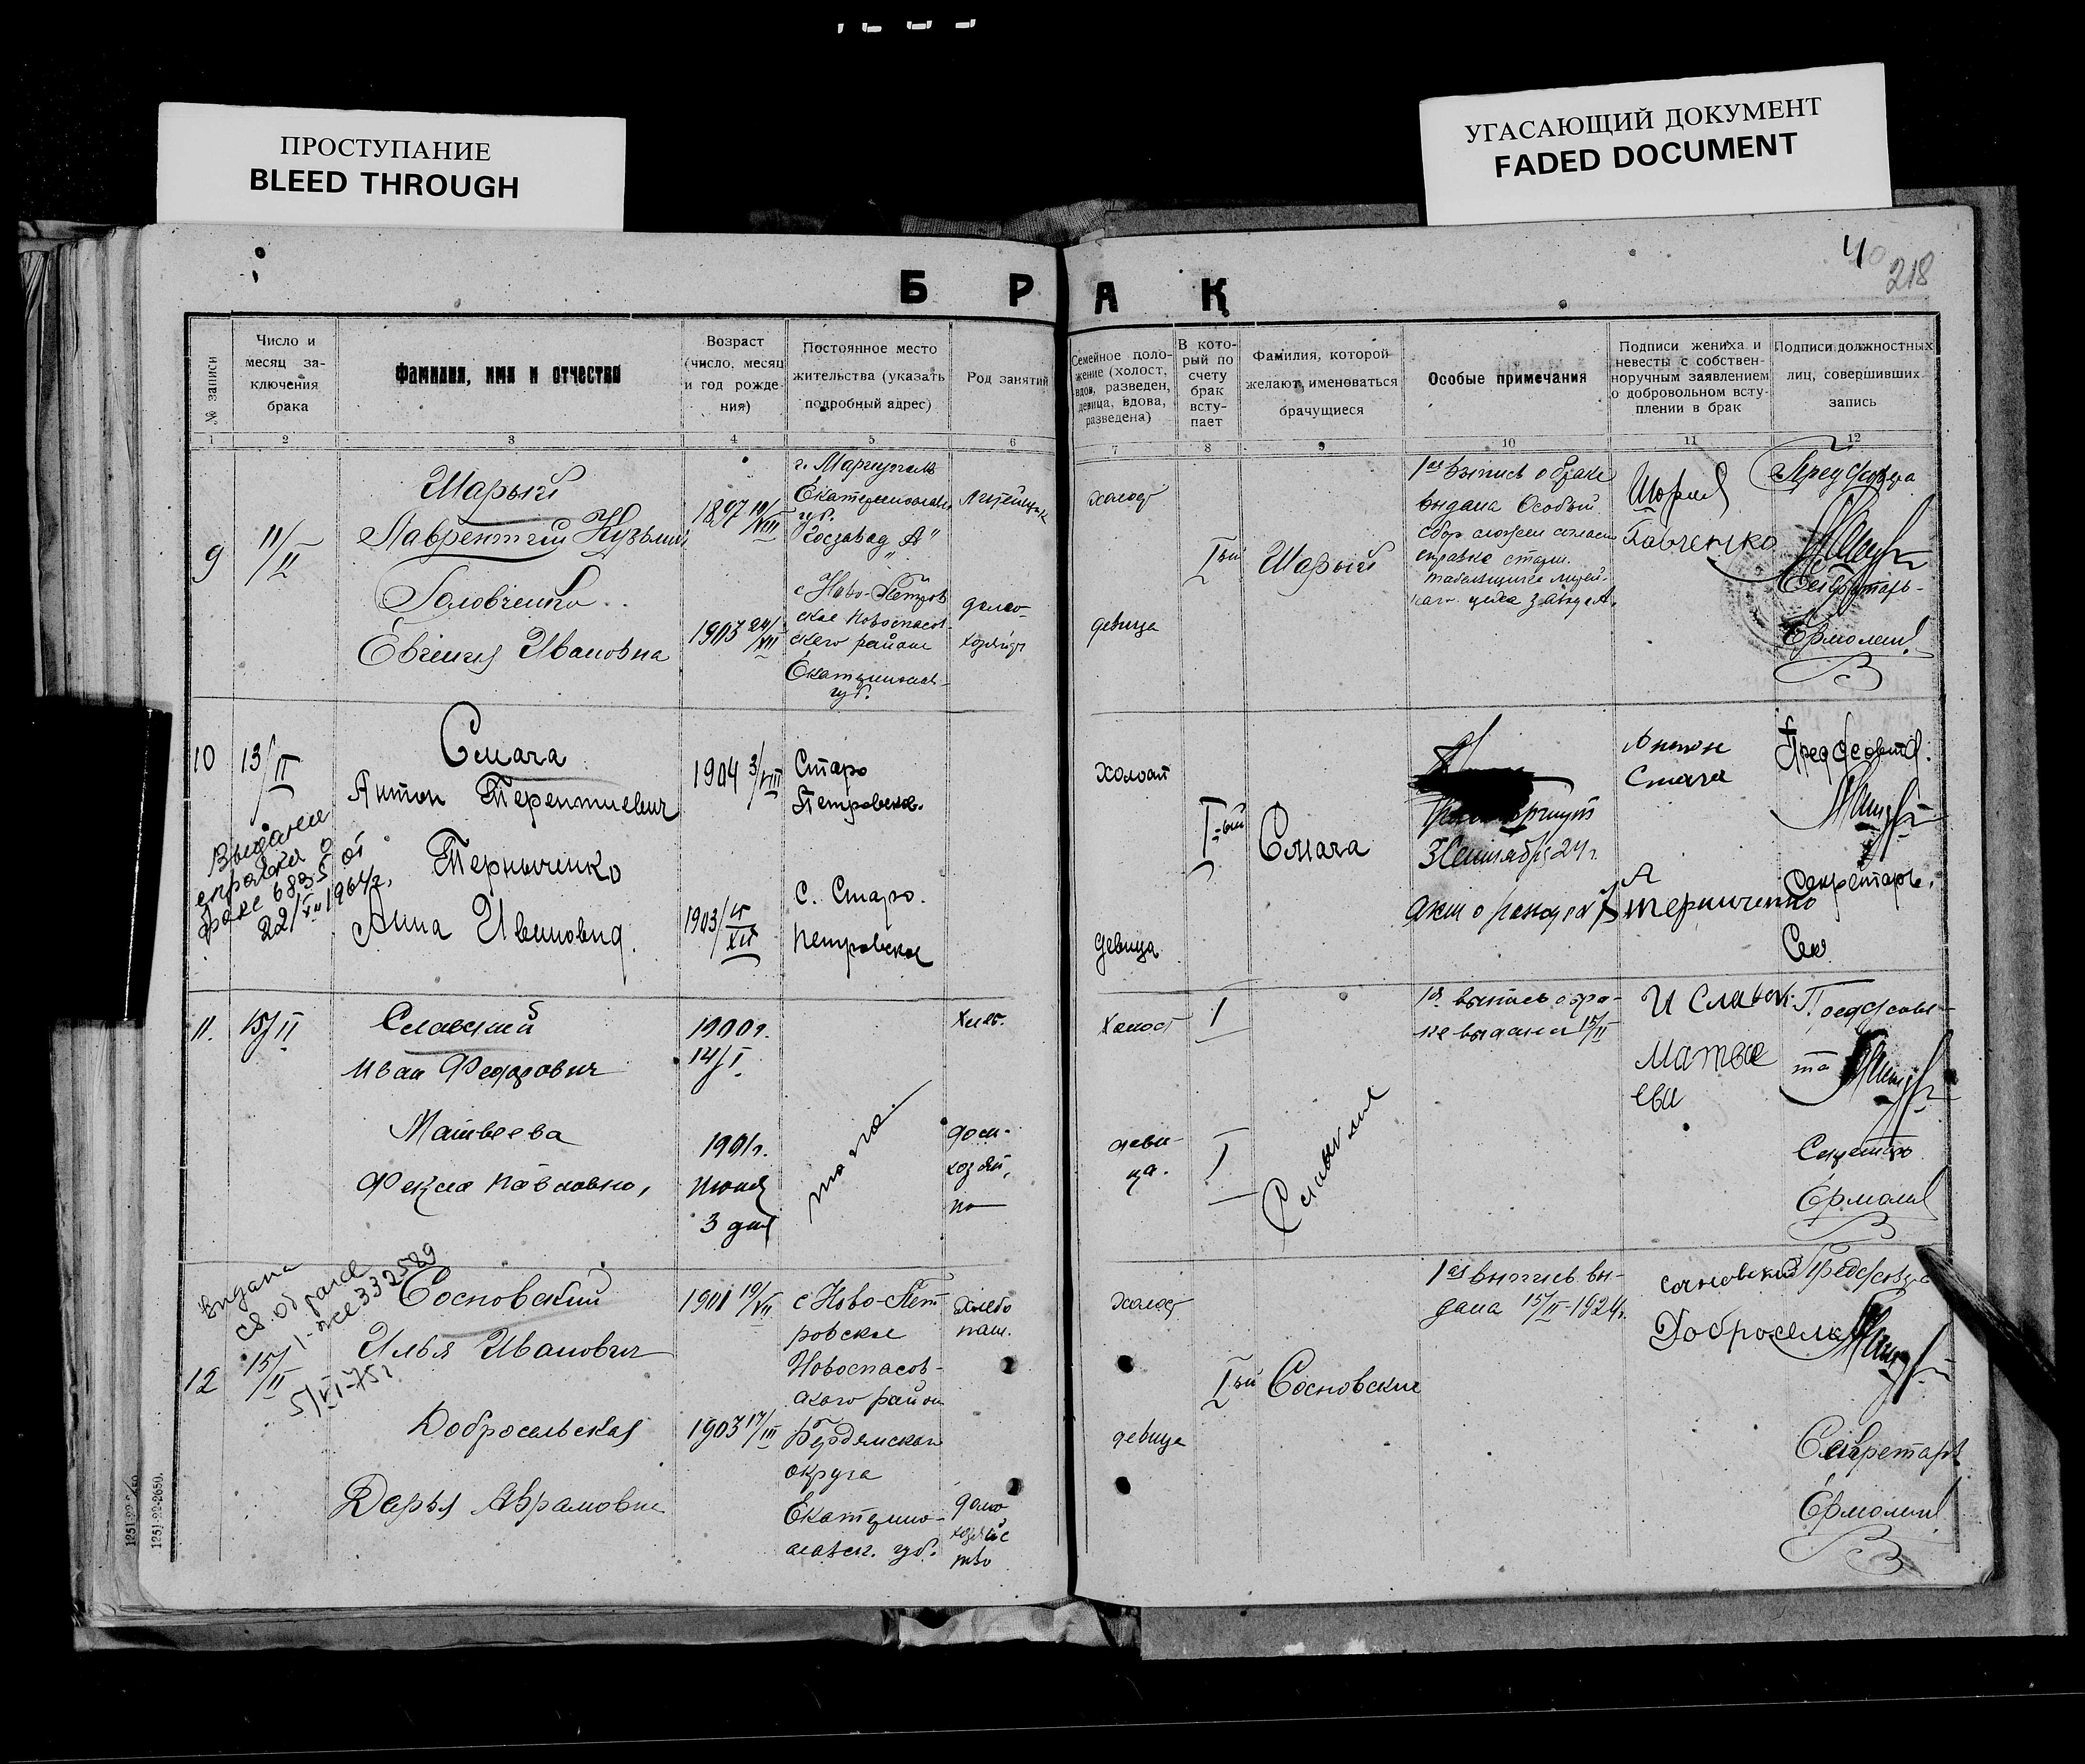 ПРОСТУПАНИЕ
BLEED THROUGH
УГАСАЮЩИЙ ДОКУМЕНТ
FADED DOCUMENT
40
218
Б Р А К
№ записи
Число и
месяц за-
ключения
брака
Фамилия, имя и отчество
Возраст
(число, месяц
и год рожде-
ния)
Постоянное место
жительства (указать
подробный адрес)
Род занятий
Семейное поло-
жение (холост,
вдов, разведен,
девица, вдова,
разведена)
В кото-
рый по
счету
брак
всту-
пает
Фамилия, которой
желают именоваться
брачущиеся
Особые примечания
Подписи жениха и
невесты с собствен-
норучным заявлением
о добровольном всту-
плении в брак
Подписи должностных
лиц, совершивших
запись
1 2 3 4 5 6 7 8 9 10 11 12
9
11/II
Шарый
Лаврентий Кузьмич
Головченко
Евгения Ивановна
1897 19/VIII
1903 24/XII
г. Мариуполь
Екатеринославск.
губ.
Госзавод „А"
с Ново-Петров
ское Новоспасов
ского района
Екатеринослав-
губ.
Литейщик
домо-
холост
девица
I ый
Шарый
1ая выпись о браке
выдана Особый
сбор
справке
цеха завода А.
Шарый
Секретарь
Ермолин
10
13/II
Смага
Антон Терентиевич
Терниченко
Анна Ивановна.
Выдана
справка о
браке 6835 от
22/XII 1964г.
1904 3/VIII
1903/XII
Старо
Петровском.
с. Старо.
Петровское
холост
девица
I-ый
Смага
3 Сентября 24 г.
Акт о разводе №
Антон
Смага
А
Терниченко
Предсовета.
Секретарь.
11.
15/II
Славский
Иван Федорович
Матвеева
Фекла Павловна,
1900г.
14/I.
1901г.
Июня
3 дня
Хлеб.
дом-
хозяй,
холост
деви-
ца.
I
I
Славские
1я выпись о бра-
ке выдана 15/II
И Славск.
Матве
ева
Предсове-
та
Ермолин
12
15/II
Выдана
св. о браке
I-же 332589
5/VI-75г
Сосновский
Илья Иванович
Добросельская
Дарья Абрамовна
1901 19/VII
1903 17/III
с Ново-Пет
ровское
Новоспасов-
ского район
Бердянского
округа
Екатерино-
славск. губ.
Хлебо
паш.
домо
хозяйс
тво
холост
девица
I ый
Сосновские
1ая выпись вы-
дана 15/II-1924г.
сосновский
Добросельск
Предсовета
Секретарь
Ермолин
1251-22-2650.